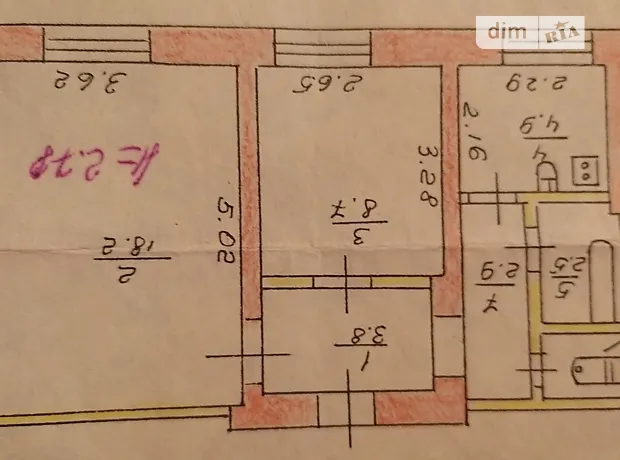 dim RIA
3.62
2.65
2.29
h=2.78
5.02
3.28
2.16
2
18.2
3
8.7
4
4.9
1
3.8
7
2.9
5
2.5